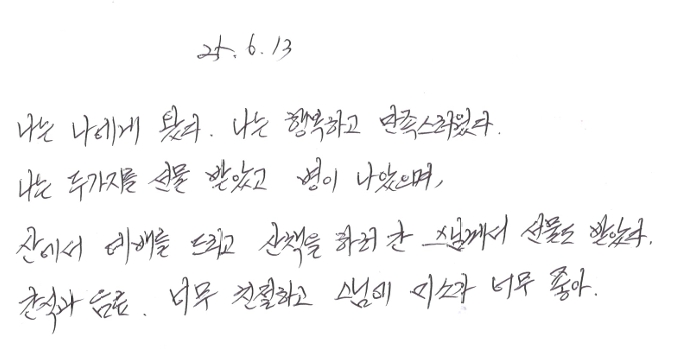 25. 6. 13
나는 나에게 왔다. 나는 행복하고 만족스러웠다.
나는 두가지를 선물 받았고 병이 나았으며,
산에서 예배를 드리고 산책을 하러 간 스님께서 선물도 받았다.
간식과 음료. 너무 친절하고 스님에 미소가 너무 좋아.